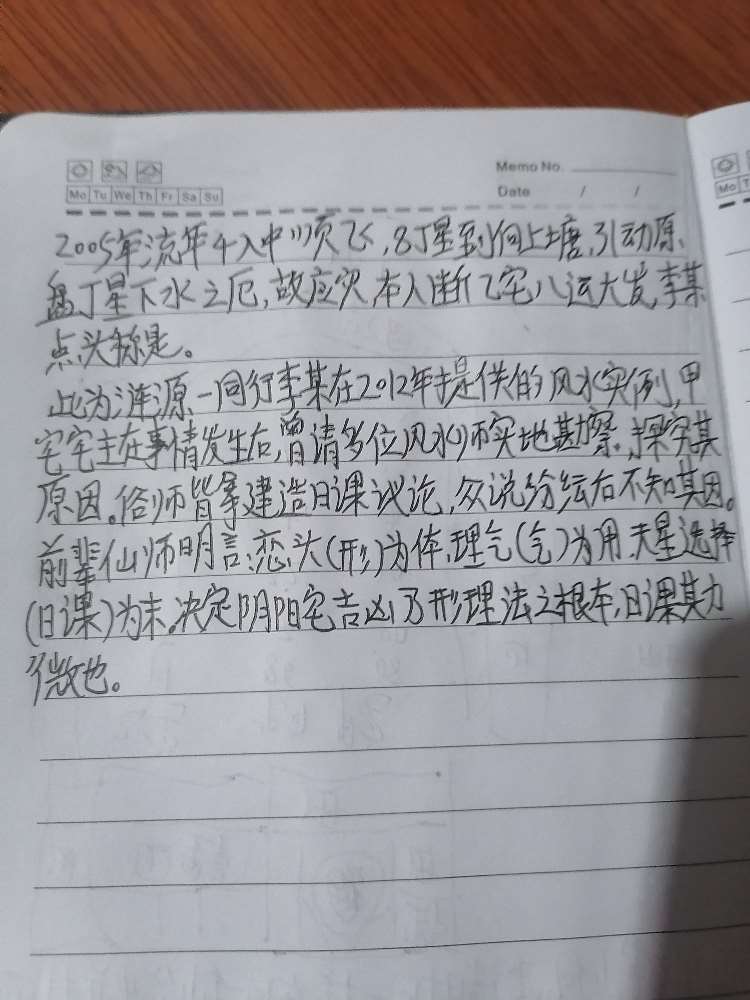 Memo No.
Mo Tu We Th Fr Sa Su
Date / /
2005年流年4入中顺飞,8丁星到向上塘,引动原
盘丁星下水之厄,故应灾,本人断乙宅八运大发,李某
点头称是。
此为涟源一同行李某在2012年提供的风水实例,甲
宅宅主在事情发生后,曾请多位风水师实地勘察,探究其
原因。俗师皆拿建造日课议论,众说纷纭后不知其因。
前辈仙师明言:恋头(形)为体,理气(气)为用,天星选择
(日课)为末。决定阴阳宅吉凶乃形理法之根本,日课其力
微也。
Mo T